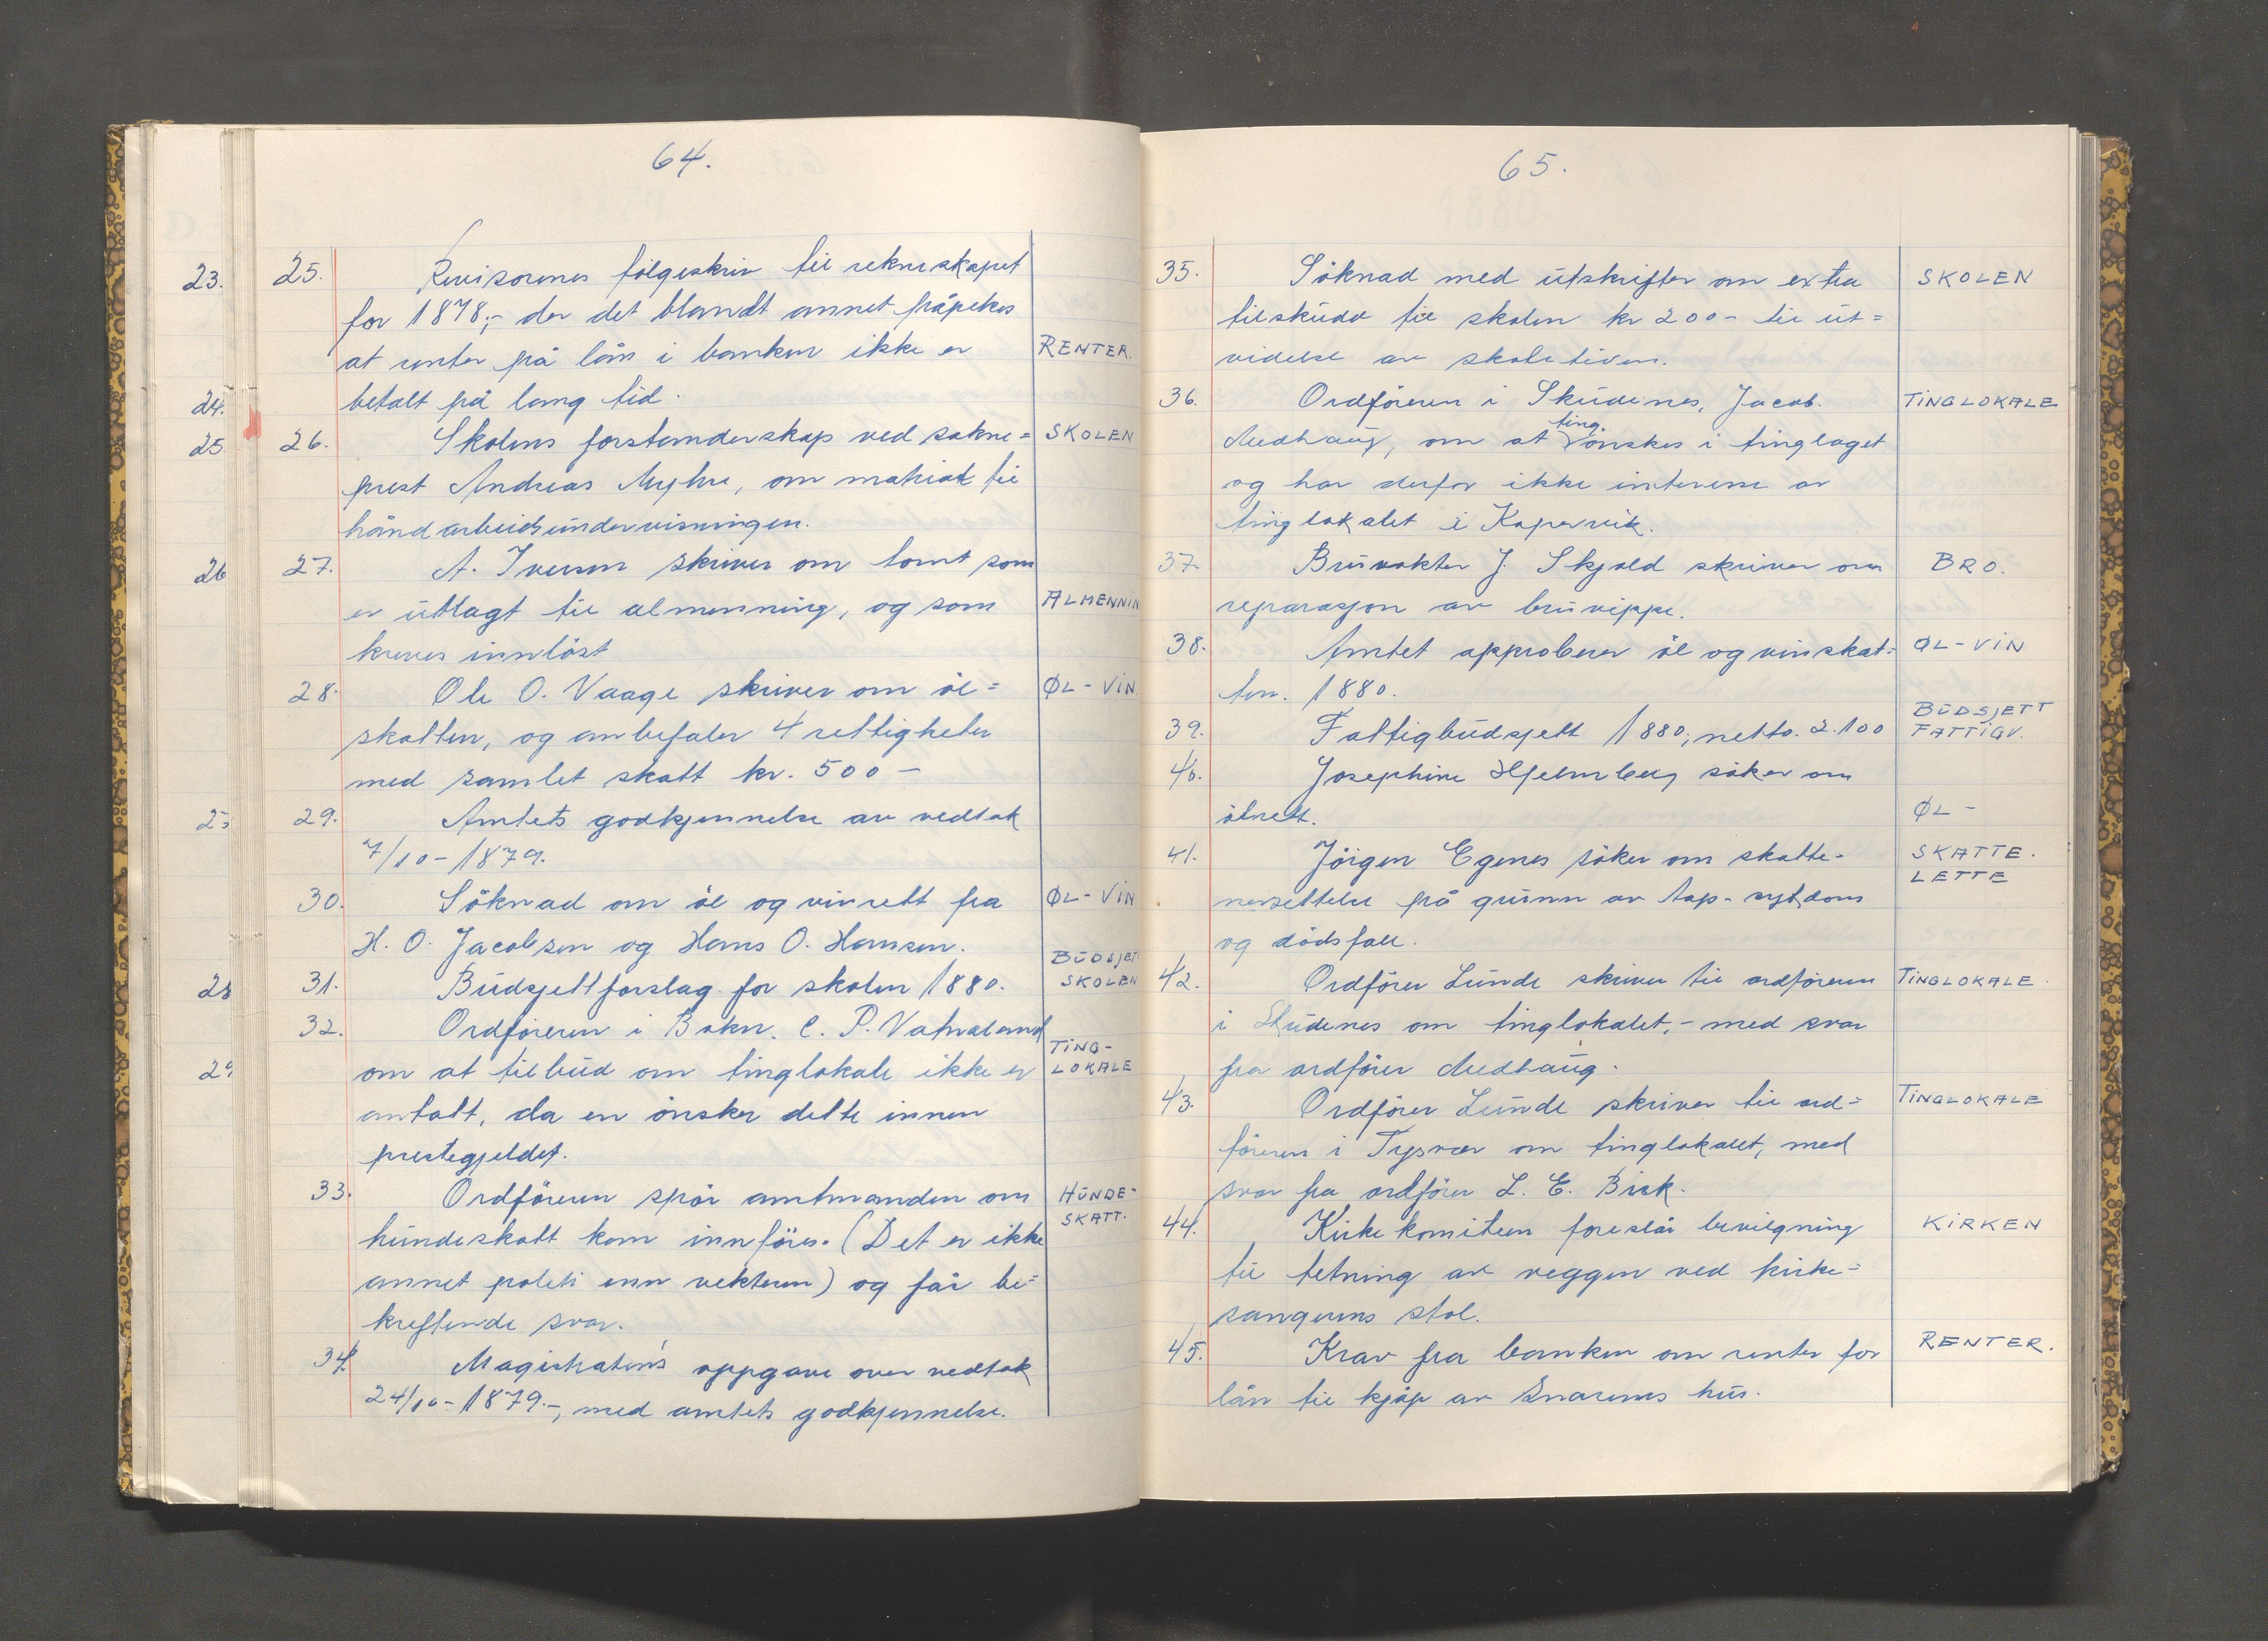 64.
23.
24.
25
26
28
29
25. Revisorenes følgeskriv til rekneskapet
for 1878;- der det blandt annet påpekes
at renter på lån i banken ikke er RENTER.
betalt på lang tid.
26. Skolens forstanderskap ved sokne= SKOLEN
prest Andreas Myhre, om matriak til
håndarbeidsundervisningen.
27. A. Iversen skriver om tomt som
er utlagt til almenning, og som ALMENNIN
kreves innløst
28. Ole O. Vaage skriver om øl= ØL-VIN.
skatten, og anbefaler 4 rettigheter
med samlet skatt kr. 500-
29. Amtets godkjennelse av vedtak
7/10-1879.
30. Søknad om øl og vinrett fra ØL-VIN
H. O. Jacobsen og Hans O. Hansen.
31. Budsjettforslag for skolen 1880. BUDSJETT SKOLEN
32. Ordføreren i Bokn. C. P. Vatnaland
om at tilbud om tinglokale ikke er TING-LOKALE
antatt, da en ønsker dette innen
prestegjeldet.
33. Ordføreren spør amtmanden om HUNDE-
hundeskatt kan innføres. (Det er ikke SKATT.
annet politi enn vekteren) og får be=
kreftende svar.
34. Magistraten's oppgave over vedtak
24/10-1879.-, med amtets godkjennelse.
65.
35. Søknad med utskrifter om extra SKOLEN
tilskudd til skolen kr 200- til ut=
videlse av skoletiden.
36. Ordføreren i Skudenes, Jacob. TINGLOKALE
Medhaug, om at ting. ønskes i tinglaget
og har derfor ikke interesse av
tinglokalet i Kopervik.
37. Bruvakter J. Skjold skriver om BRO.
reparasjon av bruvippe.
38. Amtet approberer øl og vinskat= ØL-VIN
ten. 1880.
39. Fattigbudsjett 1880; netto. 2.100 BUDSJETT FATTIGV.
40. Josephine Hjelmberg søker om
ølrett. ØL-
41. Jørgen Egenes søker om skatte- SKATTE.
nersettelse på grunn av tap- sykdom LETTE
og dødsfall.
42. Ordfører Lunde skriver til ordføreren TINGLOKALE.
i Skudenes om tinglokalet,- med svar
fra ordfører Medhaug.
43. Ordfører Lunde skriver til ord= TINGLOKALE
føreren i Tysvær om tinglokalet, med
svar fra ordfører L. E. Birk.
44. Kirkekomiteen foreslår bevilgning KIRKEN
til tetning av veggen ved kirke=
sangerens stol.
45. Krav fra banken om renter for RENTER.
lån til kjøp av Enarsens hus.